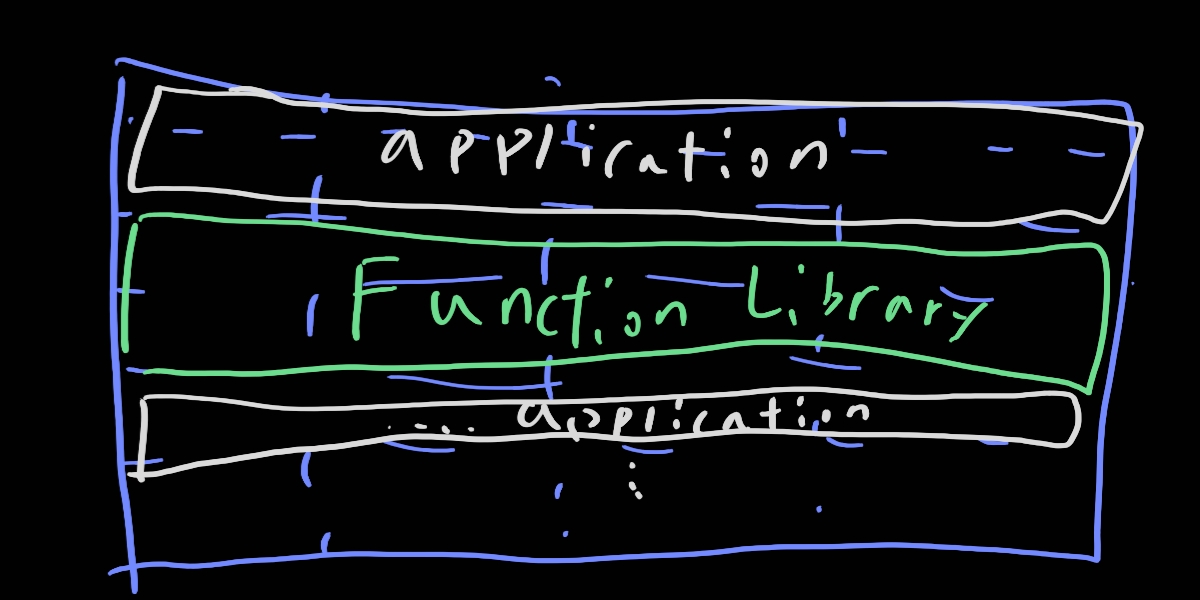 application
Function Library
.... application